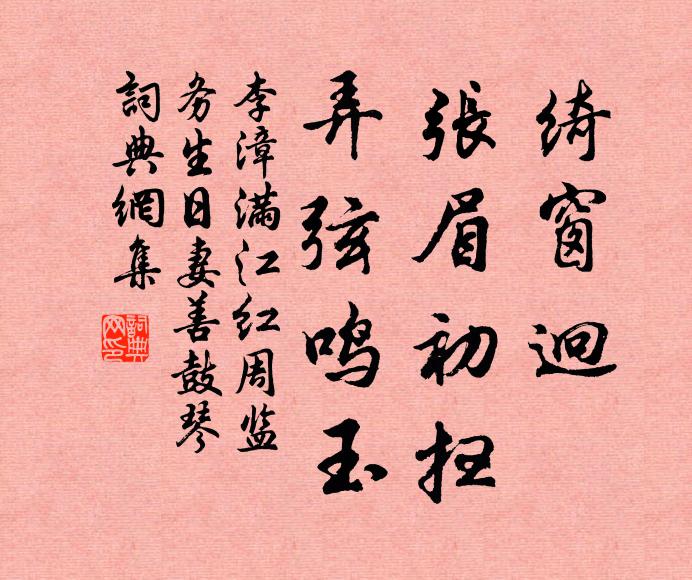 綺窗迥
張眉初抂
弄弦鸣玉
李漳满江红周监
务生日妻善鼓琴
詞典網集
詞典网印